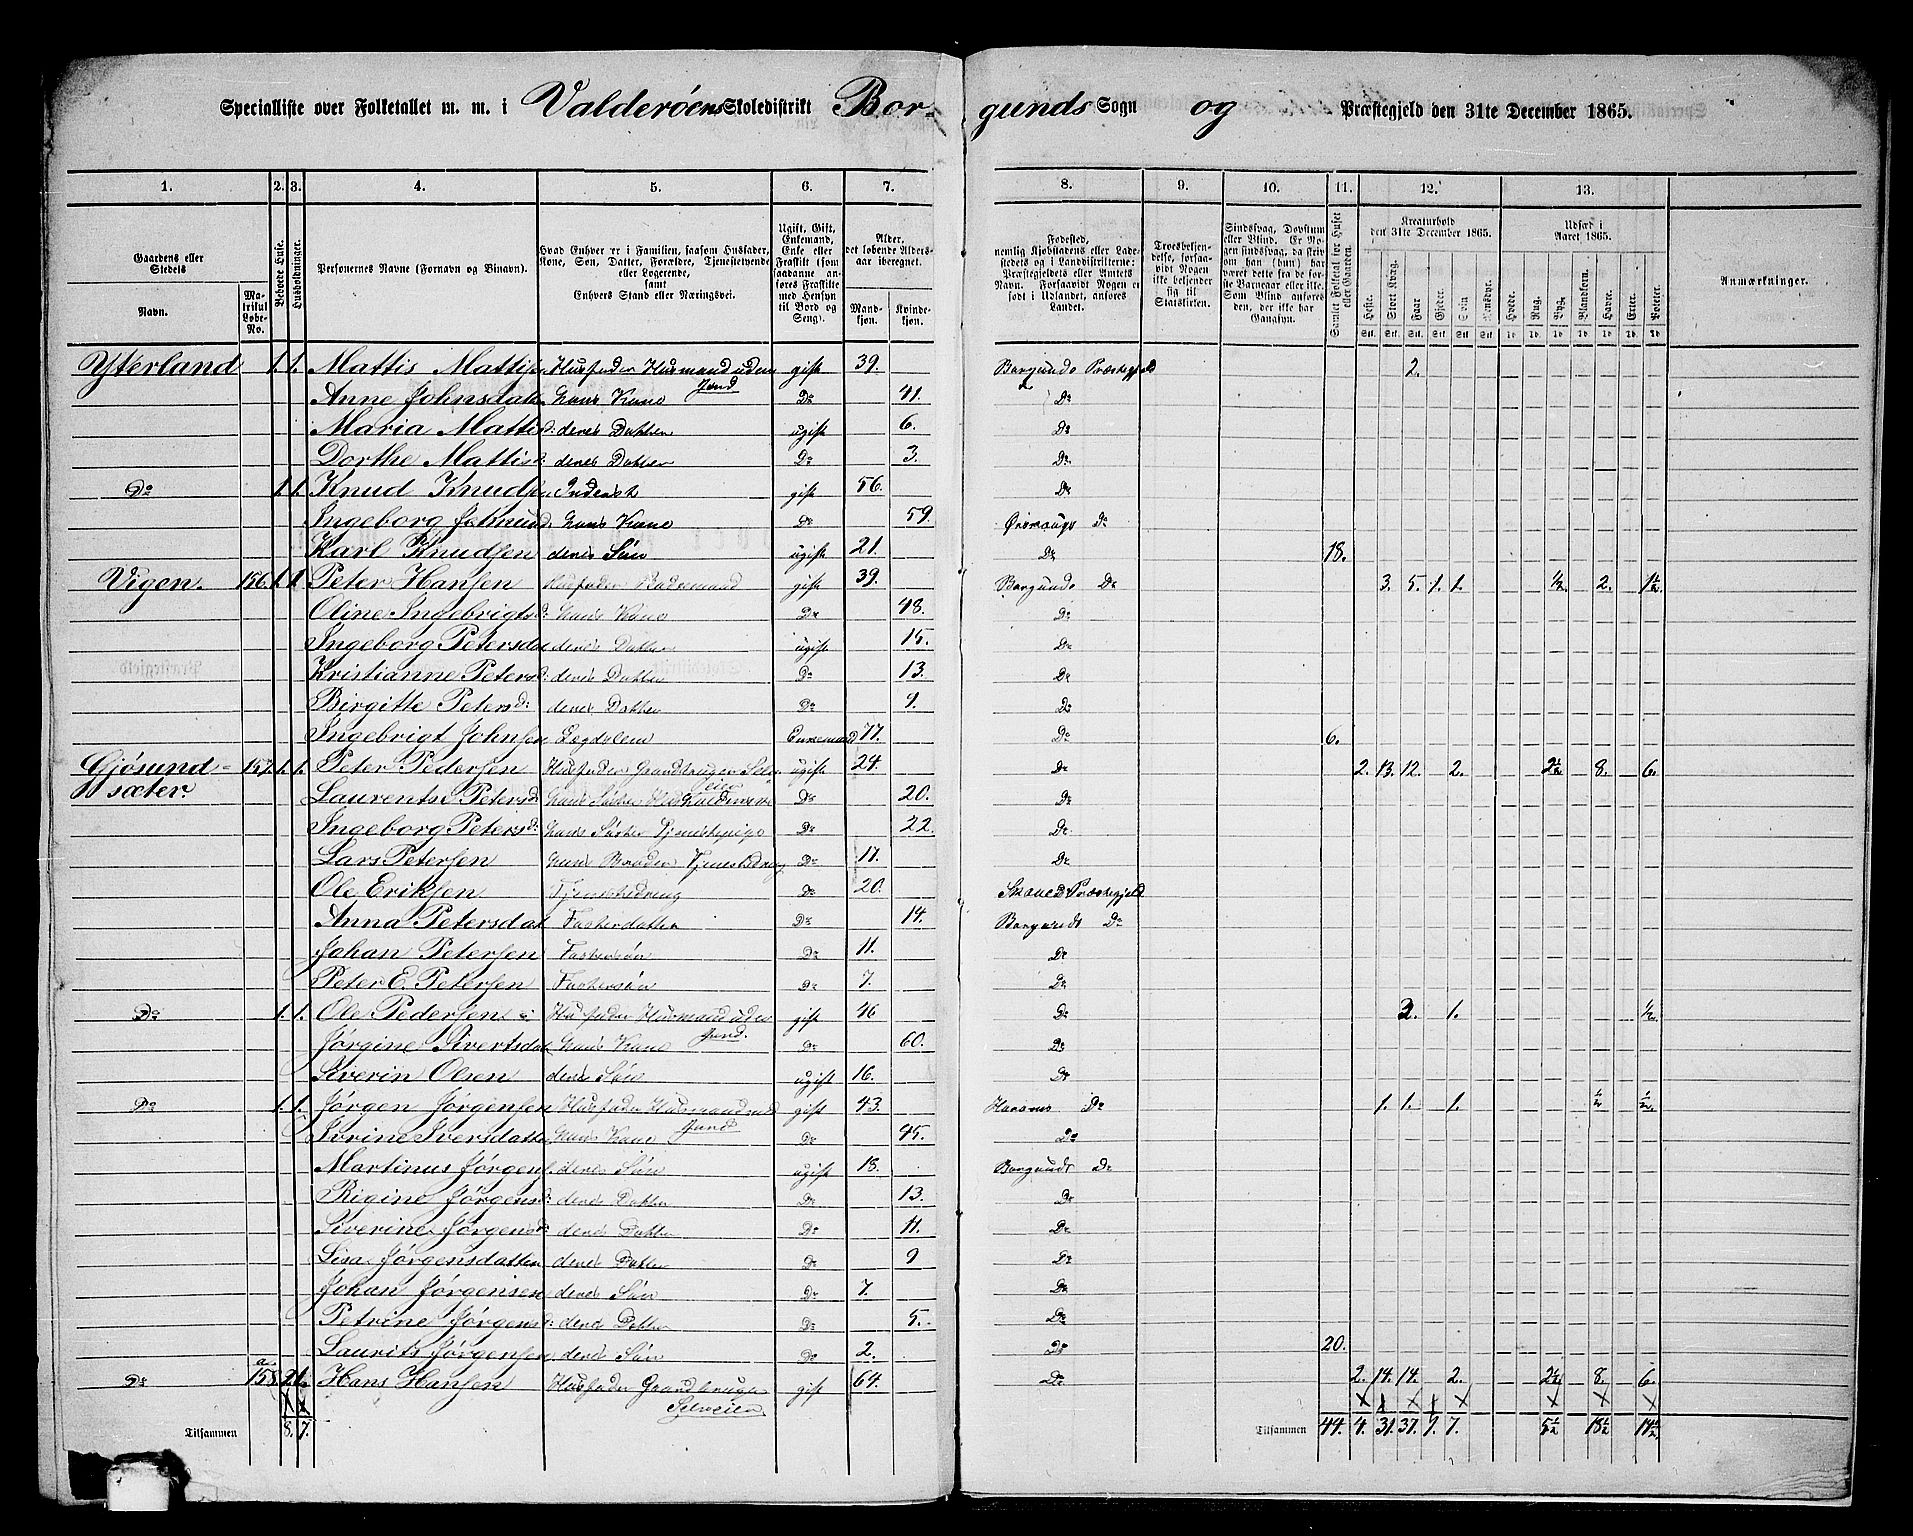 Specialliste over Folketallet m. m. i Valderøens Skoledistrikt Bor- gunds Sogn og Præstegjeld den 31te December 1865.
1. 2. 3. 4. 5. 6. 7. 8. 9. 10. 11. 12. 13.
Gaardens eller Stedets
Navn. Matrikul Løbe-No.
Beboede Huse.
Husholdninger.
Personernes Navne (Fornavn og Binavn).
Hvad Enhver er i Familien, saasom Husfader, Kone, Søn, Datter, Forældre, Tjenestetyende eller Logerende, samt Enhvers Stand eller Næringsvei.
Ugift, Gift, Enkemand, Enke eller Fraskilt (som saadanne anføres Fraskilte med Hensyn til Bord og Seng).
Alder, det løbende Aldersaar iberegnet.
Mandkjøn. Kvindekjøn.
Fødested, nemlig Kjøbstadens eller Ladestedets og i Landdistrikterne: Præstegjeldets eller Amtets Navn. Forsaavidt Nogen er født i Udlandet, anføres Landet.
Troesbekjendelse, forsaavidt Nogen ikke bekjender sig til Statskirken.
Sindssvag, Døvstum eller Blind. Er Nogen sindssvag, da skrives om han (hun) har været dette fra de første Barneaar eller ikke. Som Blind anføres den, der ikke har Gangsyn.
Samlet Folketal for Huset eller Gaarden.
Kreaturhold den 31te December 1865.
Heste. Stort Kvæg. Faar. Gjeder. Svin. Rensdyr.
Udsæd i Aaret 1865.
Hvede. Rug. Byg. Blandkorn. Havre. Erter. Poteter.
Anmærkninger.
Ytterland 1. 1. Mattis Mattisen Husfader Husmand uden Jord gift 39. Borgunds Præstegjeld 2.
Anne Johnsdatter hans Kone Do 41. Do
Maria Mattisd: deres Datter ugift 6. Do
Dorthe Mattisd: deres Datter Do 3. Do
Do 1. 1. Knud Knudsen Inderst gift 56. Do
Ingeborg hans Kone Do 59. Do
Karl Knudsen deres Søn ugift 21. Do 18.
Vigen 156. 1. 1. Peter Hansen Husfader gift 39. Borgunds Do 3. 5. 1. 1. 1/2. 2. 1 1/2
Oline Ingebrigtsd: hans Kone Do 48. Do
Ingeborg Petersdat deres Datter ugift 15. Do
Kristianne Petersd: deres Datter Do 13. Do
Birgitte Petersd: deres Datter Do 9. Do
Ingebrigt Johnsen Lægdslem Enkemand 77. Do 6.
Gjøsund- 157. 1. 1. Peter Pedersen Husfader Gaardbruger Selveier ugift 24. Do 2. 13. 12. 2. 2 1/2. 8. 6.
sæter. Laurentse Petersd: hans Søster Do 20. Do
Ingeborg Petersd: hans Søster Tjenestepige Do 22. Do
Lars Petersen hans Broder Tjenestedreng Do 17. Do
Ole Eriksen Tjenestedreng Do 20. Præstegjeld
Anna Petersdat Fosterdatter Do 14. Borgunds Do
Johan Petersen Fostersøn Do 11. Do
Peter E. Petersen Fostersøn Do 7. Do
Do 1. 1. Ole Pedersen Husfader Husmand uden Jord. gift 46 Do 1. 1/2.
Jørgine Sivertsdat hans Kone Do 60. Do
Severin Olsen deres Søn ugift 16. Do
Do 1. 1. Jørgen Jørgensen Husfader Husmand med Jord gift 43. Harams Do 1. 1. 1. 1/2 1/2.
Iverine Iversdatter hans Kone Do 45. Do
Martinus Jørgens. deres Søn ugift 18. Borgunds Do
Rigine Jørgensd: deres Datter Do 13. Do
Siverine Jørgensd deres Datter Do 11. Do
Lisa Jørgensdatter deres Datter Do 9 Do
Johan Jørgensen deres Søn Do 7. Do
Petrine Jørgensd: deres Datter Do 5. Do
Laurits Jørgensen deres Søn Do 2. Do 20.
Do 158a 2 1. Hans Hansen Husfader Gaardbruger Selveier gift 64. Do 2. 14. 14. 2. 2 1/2. 8. 6.
Tilsammen 8. 7. Tilsammen 44. 4. 31. 37. 1. 7. 5 1/2 18 1/2 14 1/2.